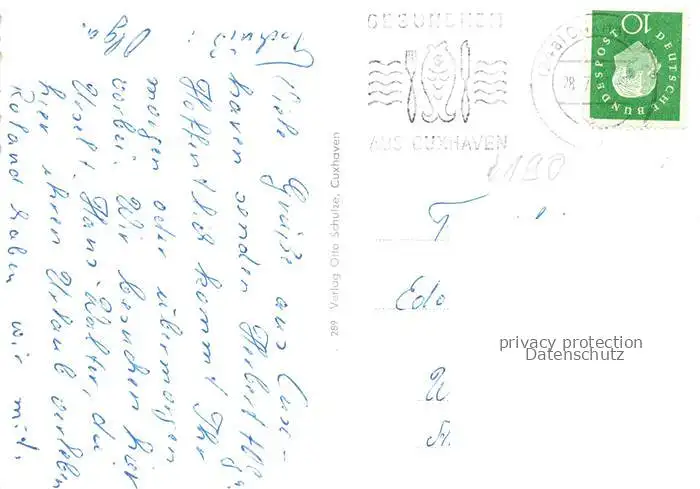 Viele Grüße aus Cux-
haven senden Herbert &
Hoffentlich kommt Ihr
morgen oder übermorgen
vorbei. Wir besuchen hier
Urselt. Hans-Walter, die
hier ihren Urlaub verleben
Roland haben wir mit.
Tschüß!
Olga.
289 Verlag Otto Schulze, Cuxhaven
GESUNDHEIT
AUS CUXHAVEN
28.7.
10
DEUTSCHE BUNDESPOST
T
Edo
privacy protection
Datenschutz